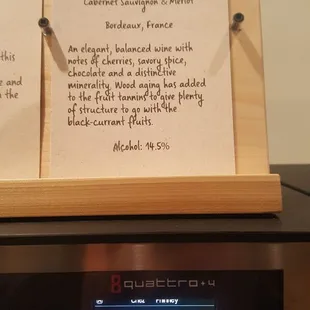 Cabernet Sauvignon & Merlot
Bordeaux, France
this
e and
n the
An elegant, balanced wine with
notes of cherries, savory spice,
chocolate and a distinctive
minerality. Wood aging has added
to the fruit tannins to give plenty
of structure to go with the
black-currant fruits.
Alcohol: 14.5%
quattro+4